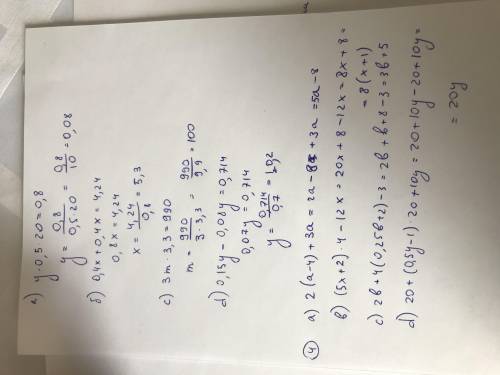 а) y·0,5·20=0,8
y = 0,8/0,5·20 = 0,8/10 = 0,08
б) 0,4x+0,4x=4,24
0,8x=4,24
x = 4,24/0,8 = 5,3
c) 3m·3,3=990
m = 990/3·3,3 = 990/9,9 = 100
d) 0,15y-0,08y=0,714
0,07y=0,714
y = 0,714/0,7 = 10,2
4
a) 2(a-4)+3a = 2a-8+3a = 5a-8
b) (5x+2)·4-12x=20x+8-12x=8x+8=
=8(x+1)
c) 2b+4(0,25b+2)-3=2b+b+8-3=3b+5
d) 20+(0,5y-1)·20+10y=20+10y-20+10y=
=20y